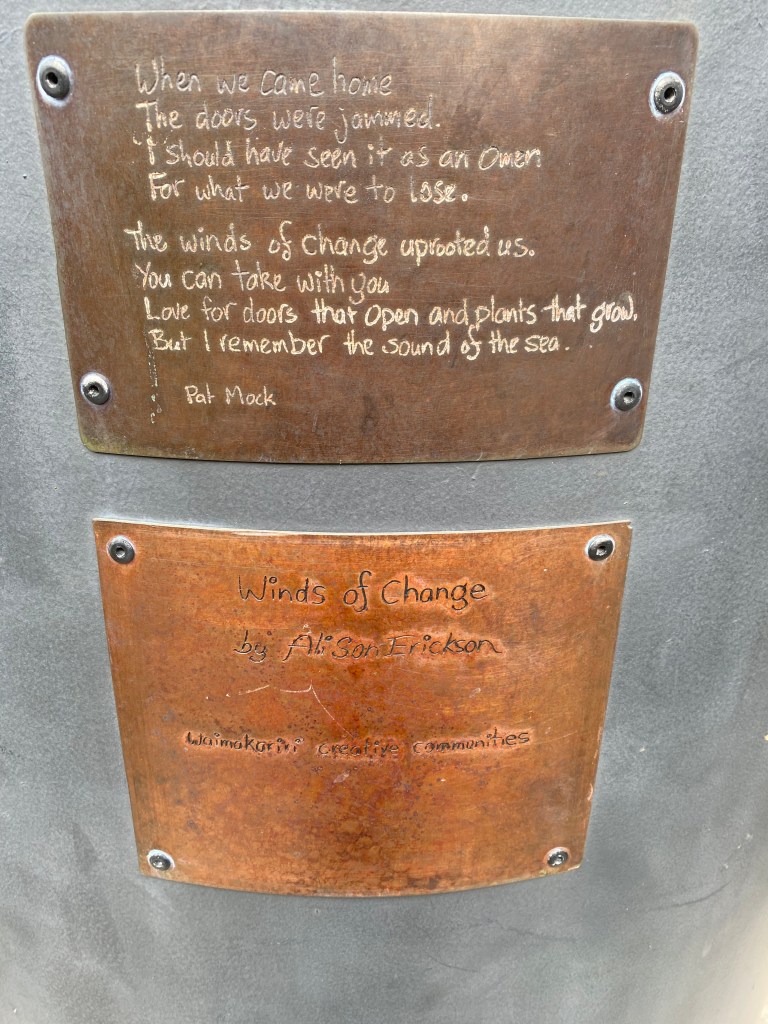 When we came home
The doors were jammed.
I should have seen it as an Omen
For what we were to lose.
The winds of change uprooted us.
You can take with you
Love for doors that open and plants that grow.
But I remember the sound of the sea.
Pat Mock
Winds of Change
by Alison Erickson
Waimakariri creative communities